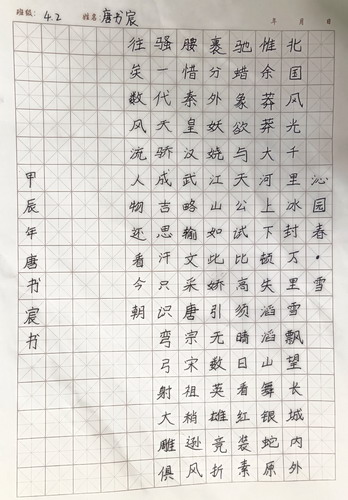 班级: 4.2 姓名 唐书宸 年 月 日
沁园春·雪
北国风光千里冰封万里雪飘望长城内外
惟余莽莽大河上下顿失滔滔山舞银蛇原
驰蜡象欲与天公试比高须晴日看红装素
裹分外妖娆江山如此娇引无数英雄竞折
腰惜秦皇汉武略输文采唐宗宋祖稍逊风
骚一代天骄成吉思汗只识弯弓射大雕俱
往矣数风流人物还看今朝
甲辰年唐书宸书